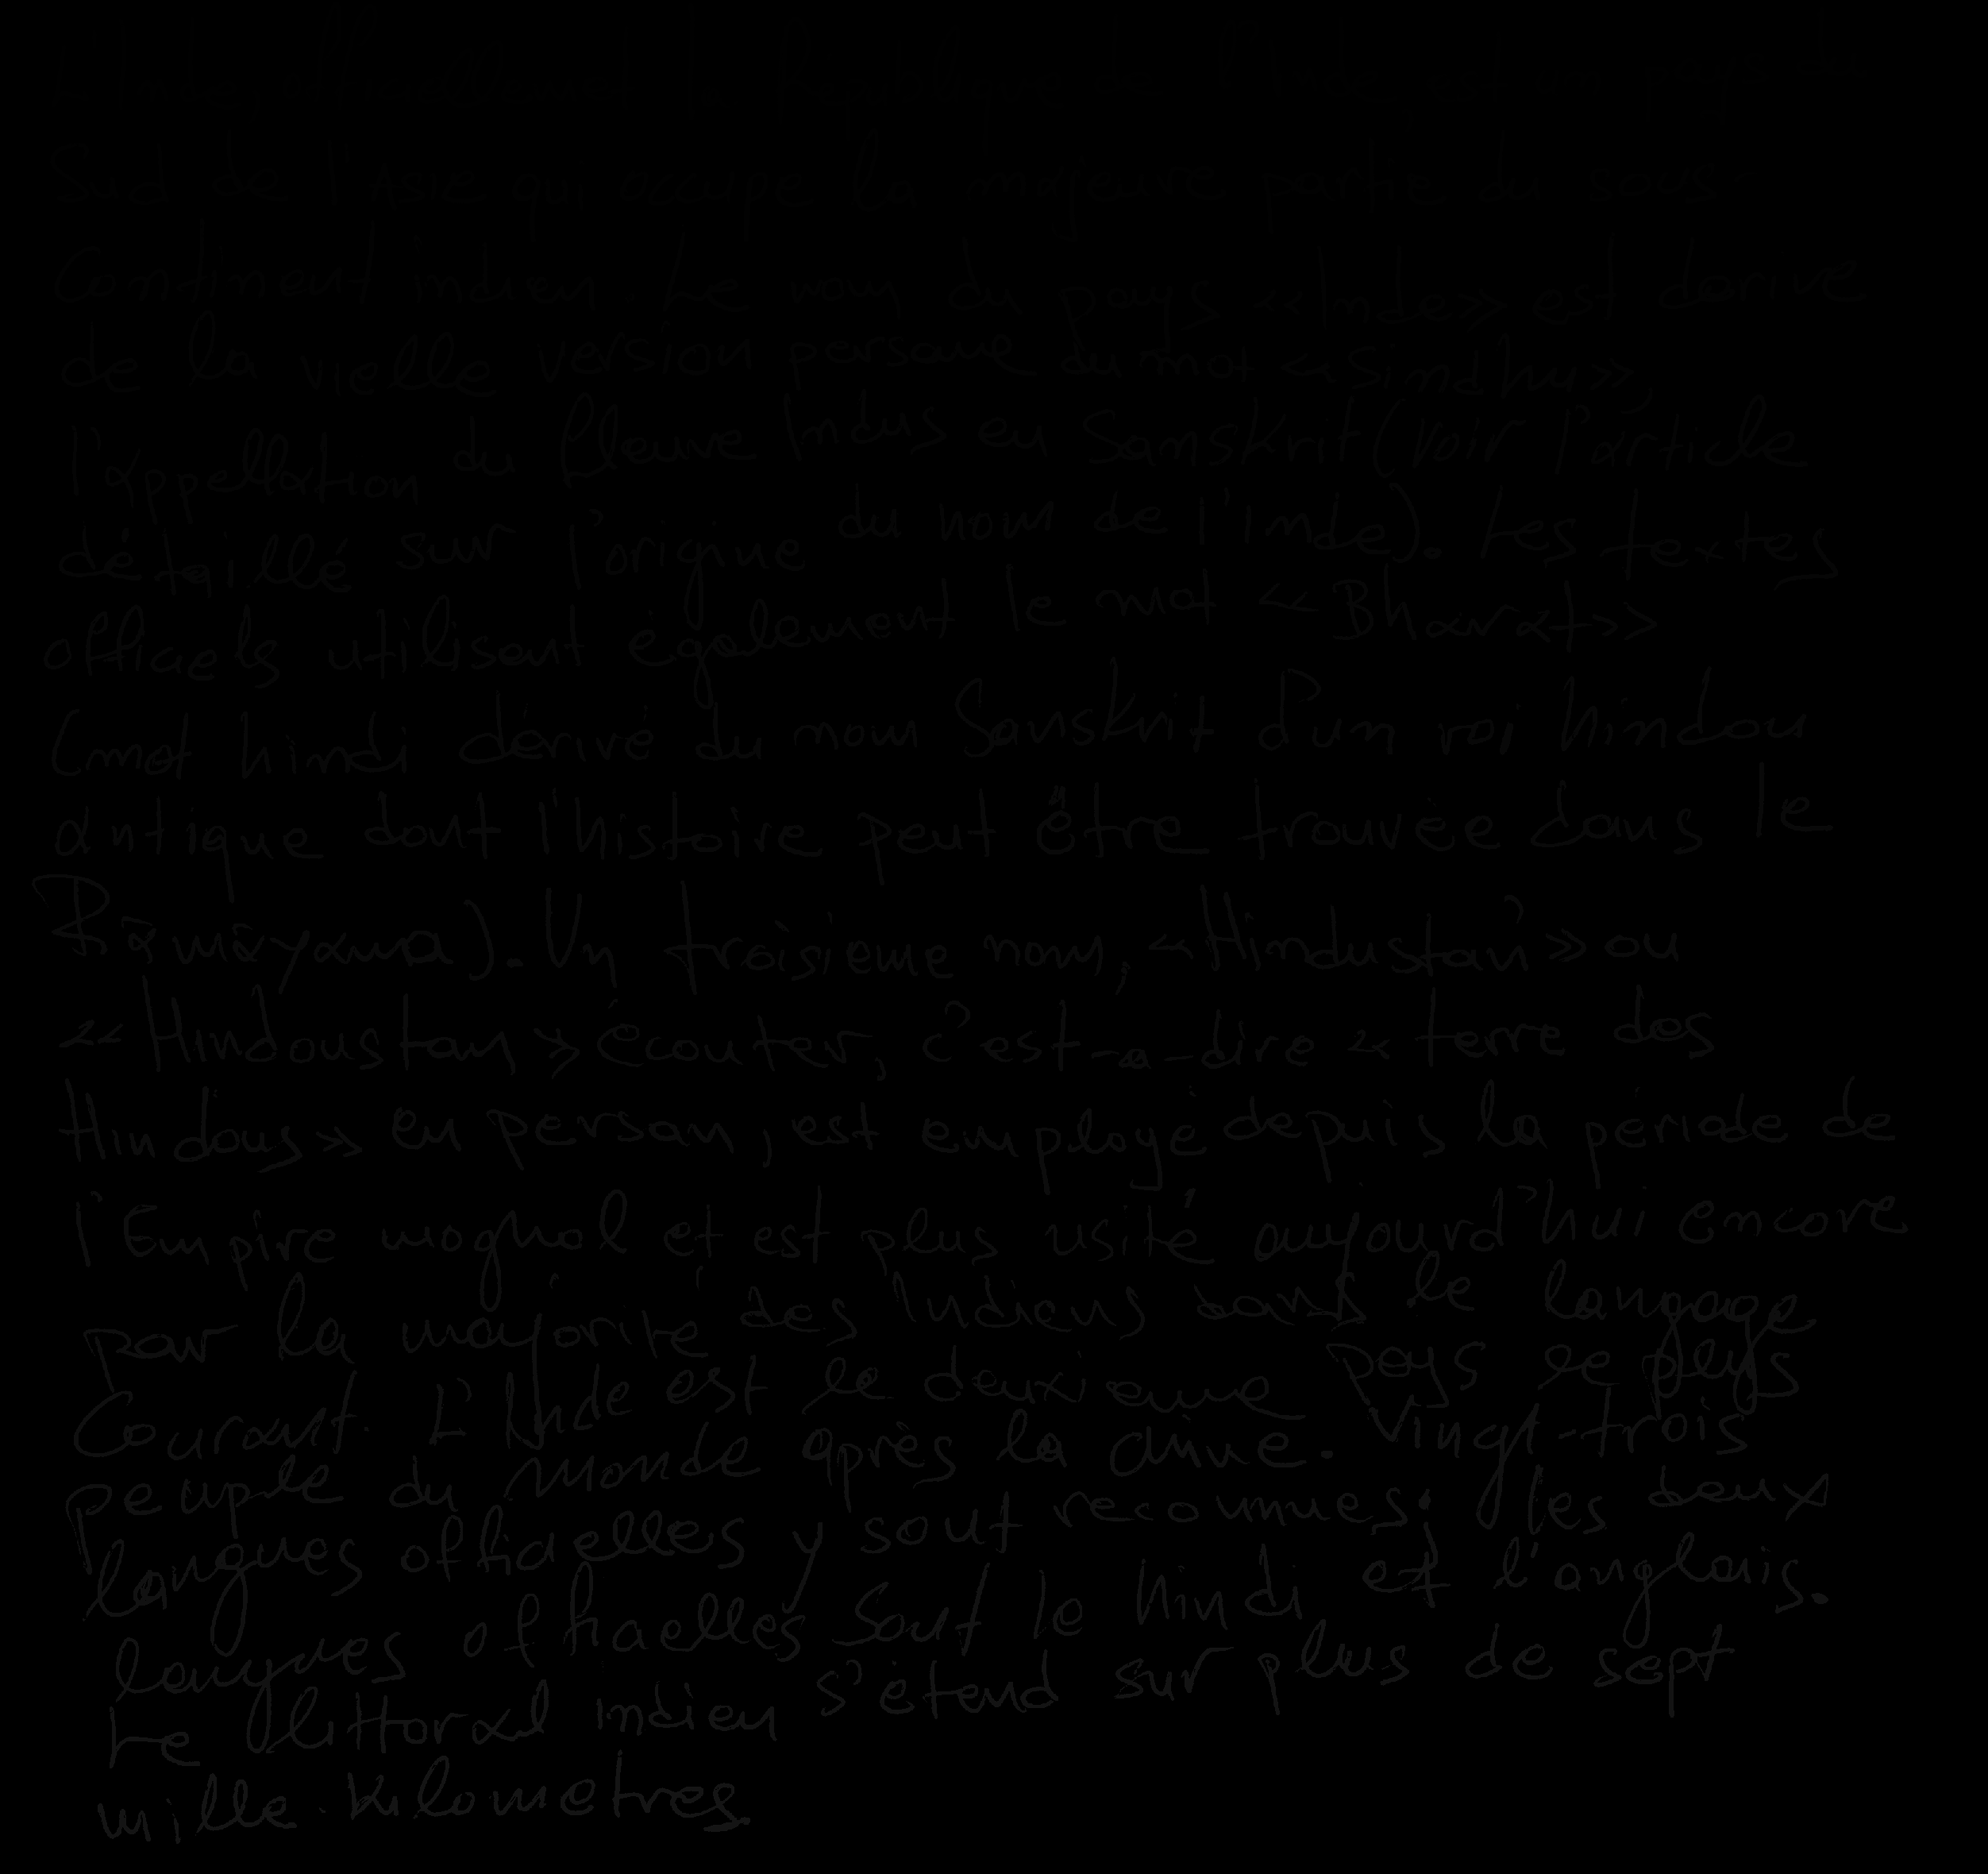 L'Inde, officiellement la République de l'Inde, est un pays du
Sud de l'Asie qui occupe la majeure partie du sous-
Continent indien. Le nom du pays «Inde» est dérivé
de la vielle version persane du mot «Sindhu»,
l'appellation du fleuve Indus en Sanskrit (voir l'article
détaillé sur l'origine du nom de l'Inde). Les textes
officiels utilisent également le mot «Bharat»
(mot hindi dérivé du nom Sanskrit d'un roi hindou
antique dont l'histoire peut être trouvée dans le
Rāmāyana). Un troisième nom, «Hindustān» ou
«Hindoustan» écouter, c'est-a-dire «terre des
Hindous» en persan, est employé depuis la période de
l'Empire moghol et est plus usité aujourd'hui encore
par la majorité des Indiens dans le langage
Courant. L'Inde est le deuxieme pays le plus
peuple du monde après la chine. Vingt-trois
langues officielles y sont reconnues; les deux
langues officielles sont le hindi et l'anglais.
Le littoral indien s'étend sur plus de sept
mille kilometres.